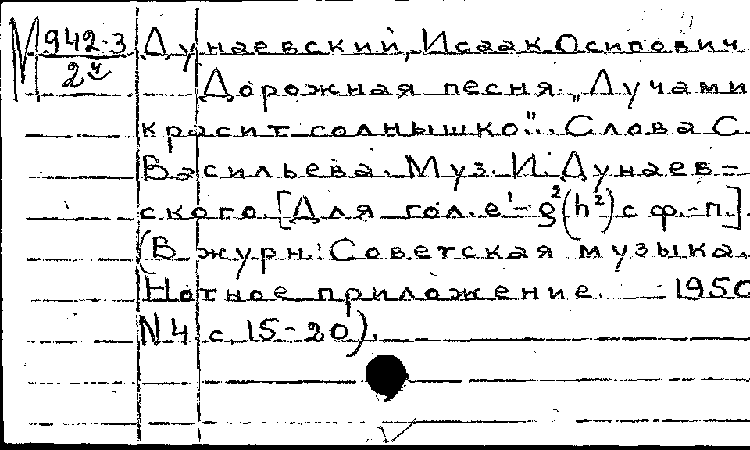 М 942-3 Дунаевский, Исаак Осипович
2ч Дорожная песня. „Лучами
красит солнышко".. Слова С.
Васильева. Муз. И. Дунаев-
ского. [Для гол. e¹-g²(h²) с ф.-п.].
(В журн: Советская музыка.
Нотное приложение. 1950
N4 с. 15-20).